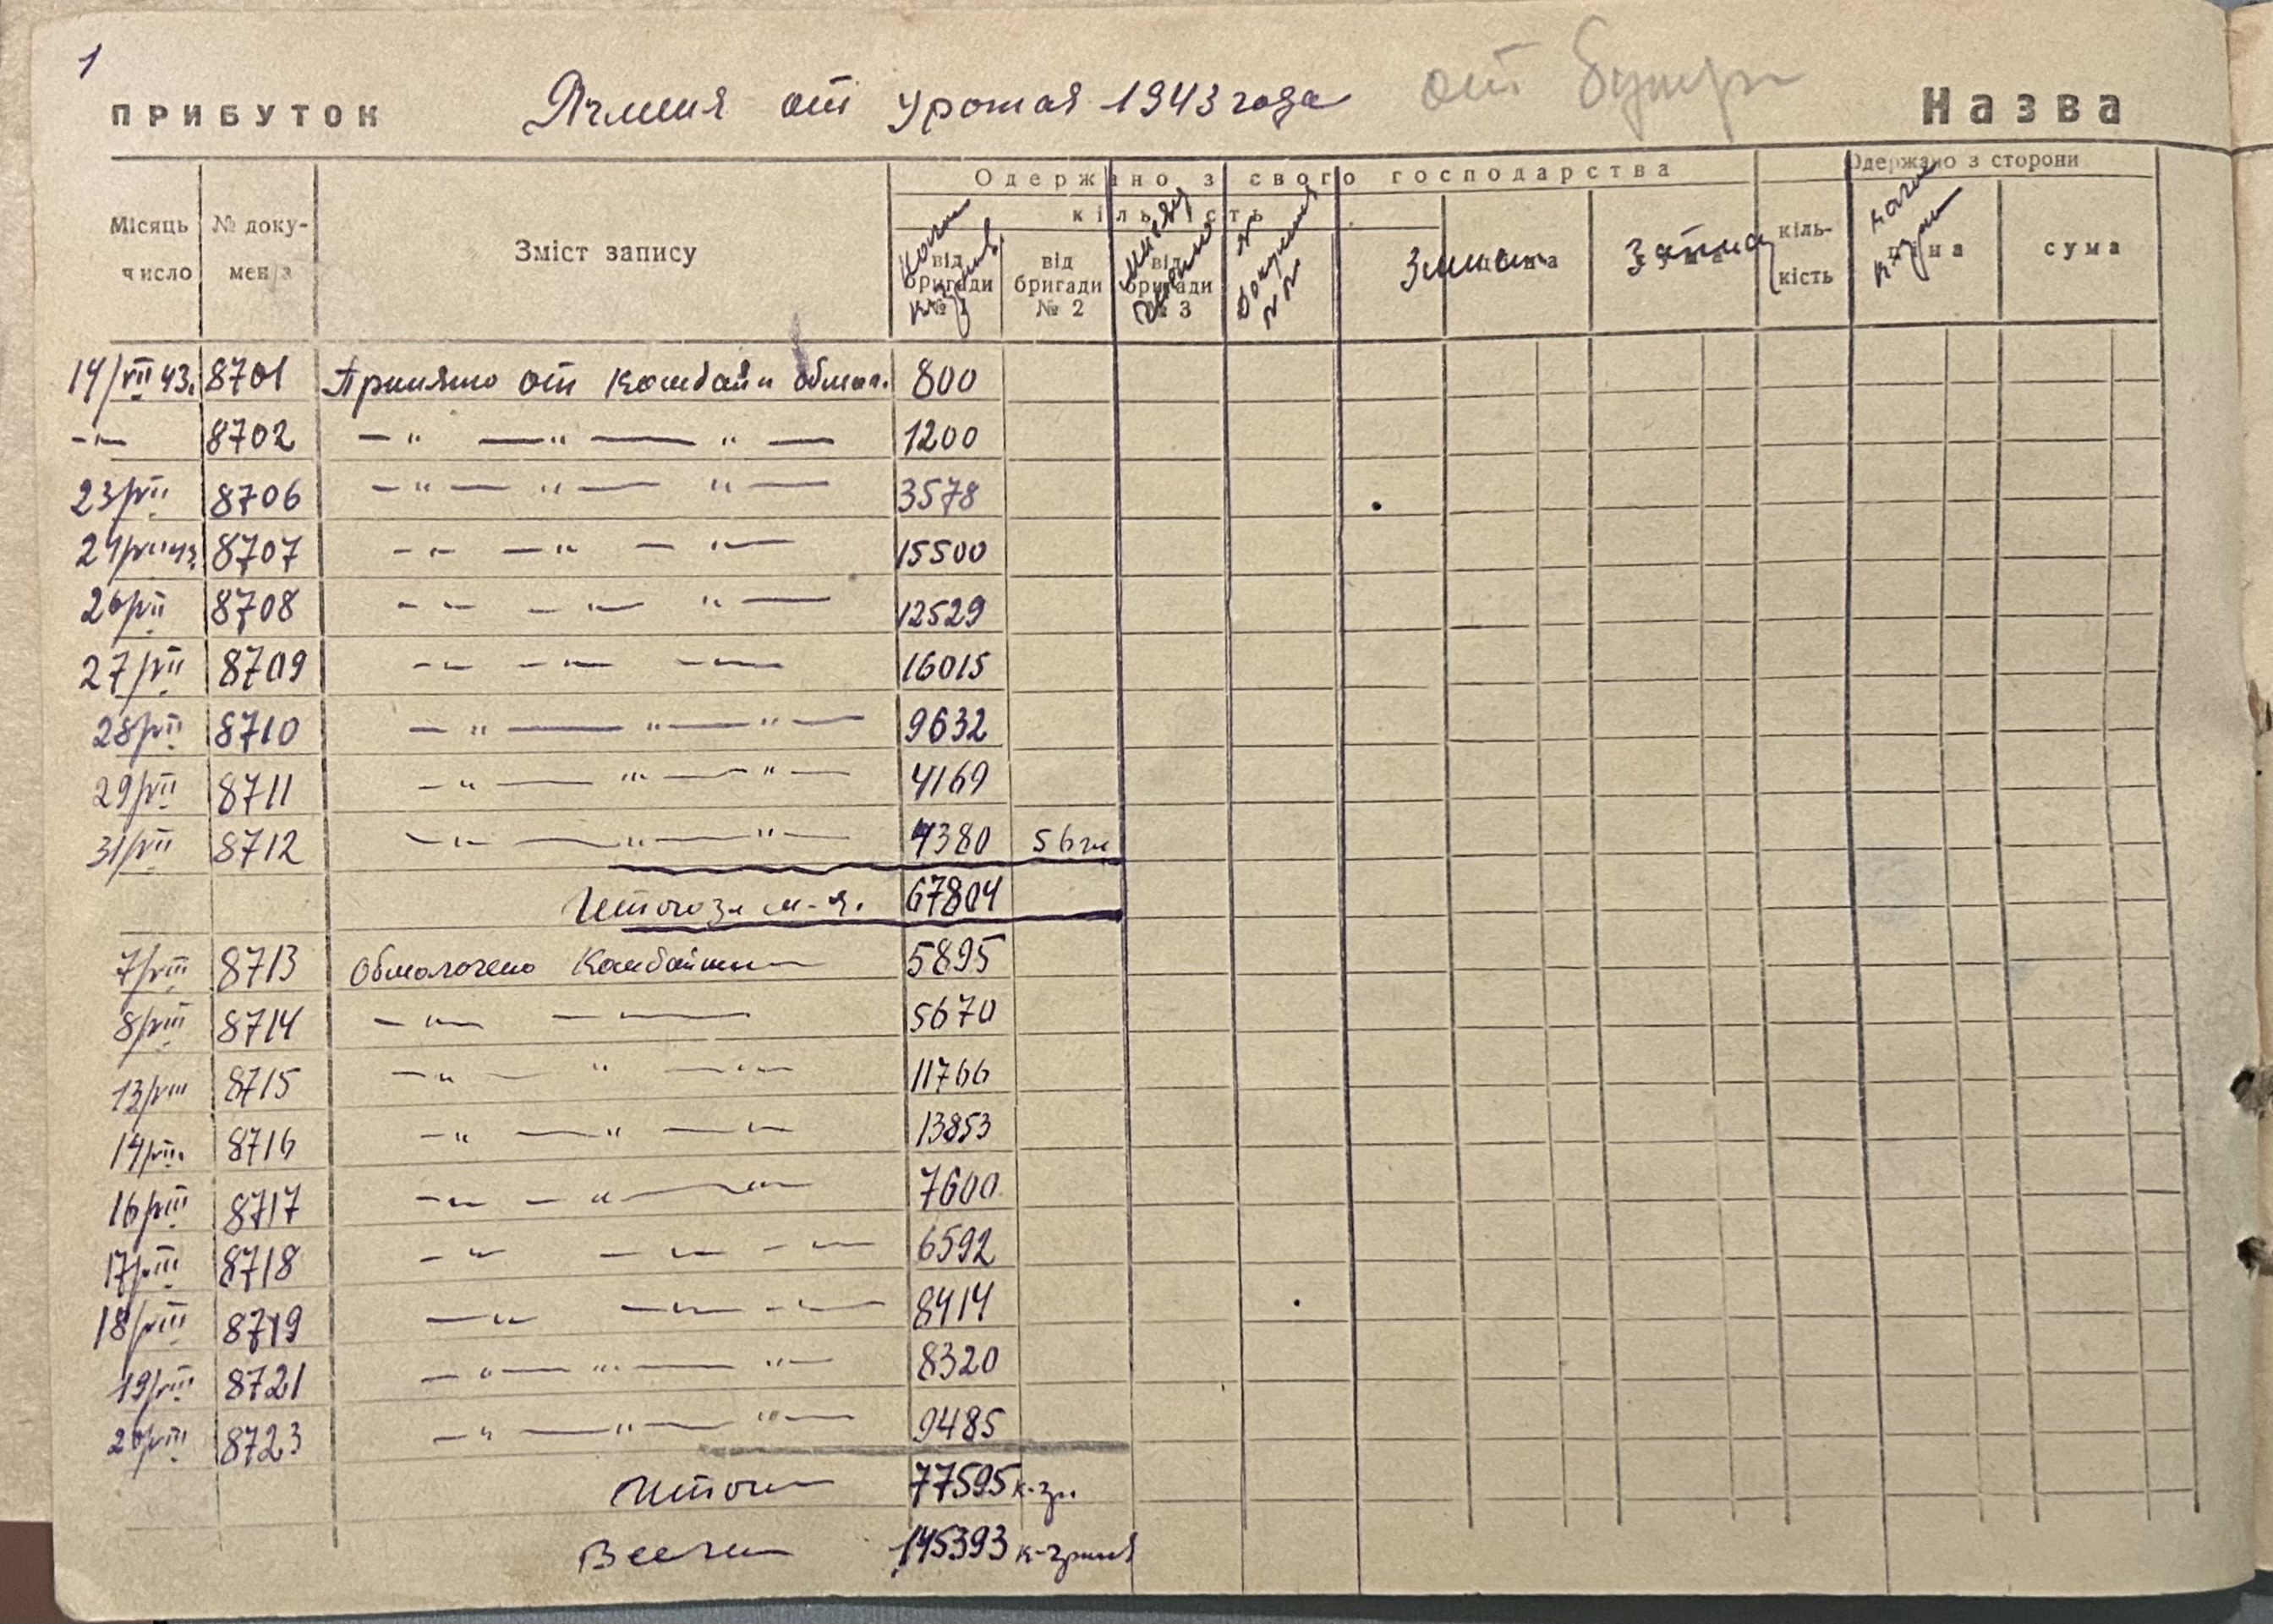 1
ПРИБУТОК Ячменя от урожая 1943 года от Назва
Одержано з свого господарства Одержано з сторони
Місяць число № документа Зміст запису кількість від бригади від бригади № 2 від бригади № 3 кількість ціна сума
14/VII 43. 8701 Принято от комбайн обмол. 800
-"- 8702 -"- -"- -"- 1200
23/VII 8706 -"- -"- -"- 3578
24/VII 43 8707 -"- -"- -"- 15500
26/VII 8708 -"- -"- -"- 12529
27/VII 8709 -"- -"- -"- 16015
28/VII 8710 -"- -"- -"- 9632
29/VII 8711 -"- -"- -"- 4169
31/VII 8712 -"- -"- -"- 4380 56
Итого за м-ц. 67804
7/VIII 8713 Обмолочено Комбайном 5895
8/VIII 8714 -"- -"- 5670
13/VIII 8715 -"- -"- -"- 11766
14/VIII 8716 -"- -"- -"- 13853
16/VIII 8717 -"- -"- -"- 7600
17/VIII 8718 -"- -"- -"- 6592
18/VIII 8719 -"- -"- -"- 8414
19/VIII 8721 -"- -"- -"- 8320
20/VIII 8723 -"- -"- -"- 9485
Итого 77595 к-гр
Всего 145393 к-грмм